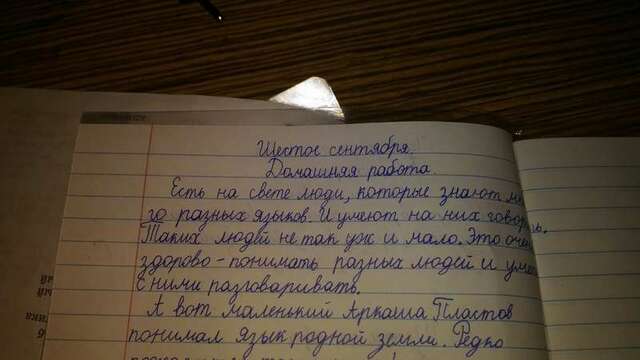 Шестое сентября.
Домашняя работа.
Есть на свете люди, которые знают мно
го разных языков. И умеют на них говорить.
Таких людей не так уж и мало. Это очень
здорово - понимать разных людей и уметь
с ними разговаривать.
А вот маленький Аркаша Пластов
понимал язык родной земли. Редко